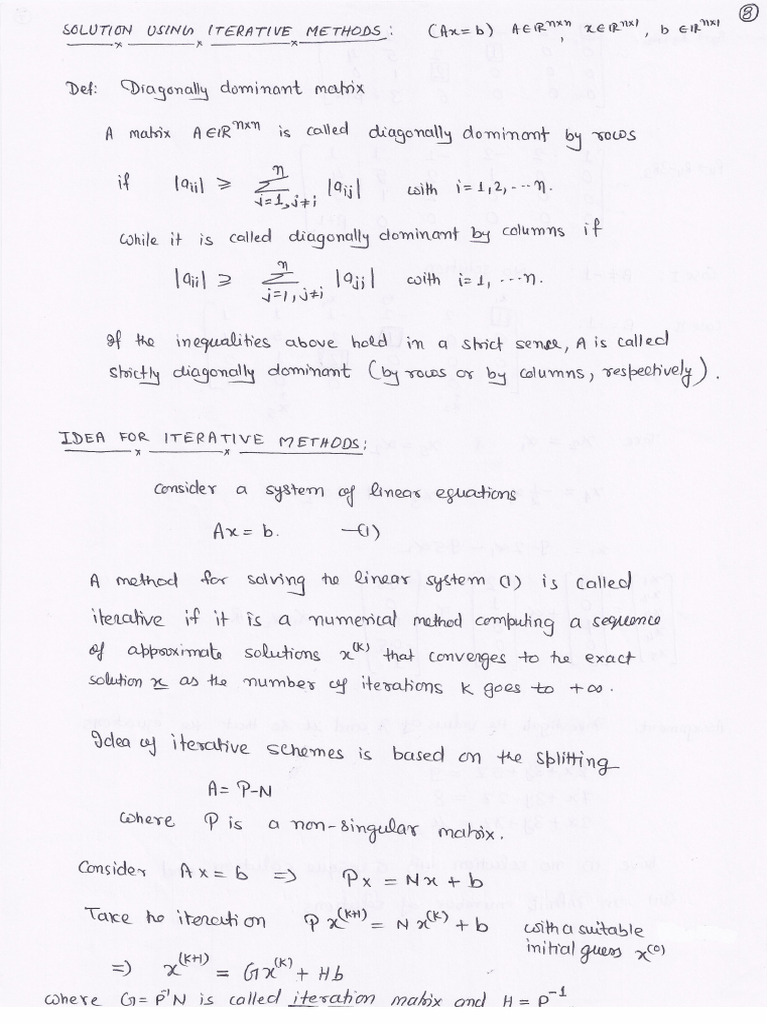 8
SOLUTION USING ITERATIVE METHODS: (Ax=b) A∈IR^{n×n}, x∈IR^{n×1}, b∈IR^{n×1}
Def: Diagonally dominant matrix
A matrix A∈IR^{n×n} is called diagonally dominant by rows
if |a_{ii}| ⩾ \sum_{j=1, j≠i}^{n} |a_{ij}| with i=1,2,...n.
While it is called diagonally dominant by columns if
|a_{ii}| ⩾ \sum_{j=1, j≠i}^{n} |a_{ji}| with i=1, ...n.
If the inequalities above hold in a strict sense, A is called
strictly diagonally dominant (by rows or by columns, respectively).
IDEA FOR ITERATIVE METHODS:
Consider a system of linear equations
Ax=b. —(1)
A method for solving the linear system (1) is called
iterative if it is a numerical method computing a sequence
of approximate solutions x^{(k)} that converges to the exact
solution x as the number of iterations k goes to +∞.
Idea of iterative schemes is based on the splitting
A= P-N
where P is a non-singular matrix.
Consider Ax=b => Px = Nx + b
Take the iteration P x^{(k+1)} = N x^{(k)} + b with a suitable
initial guess x^{(0)}
=> x^{(k+1)} = Gx^{(k)} + Hb
where G= P^{-1}N is called iteration matrix and H = P^{-1}